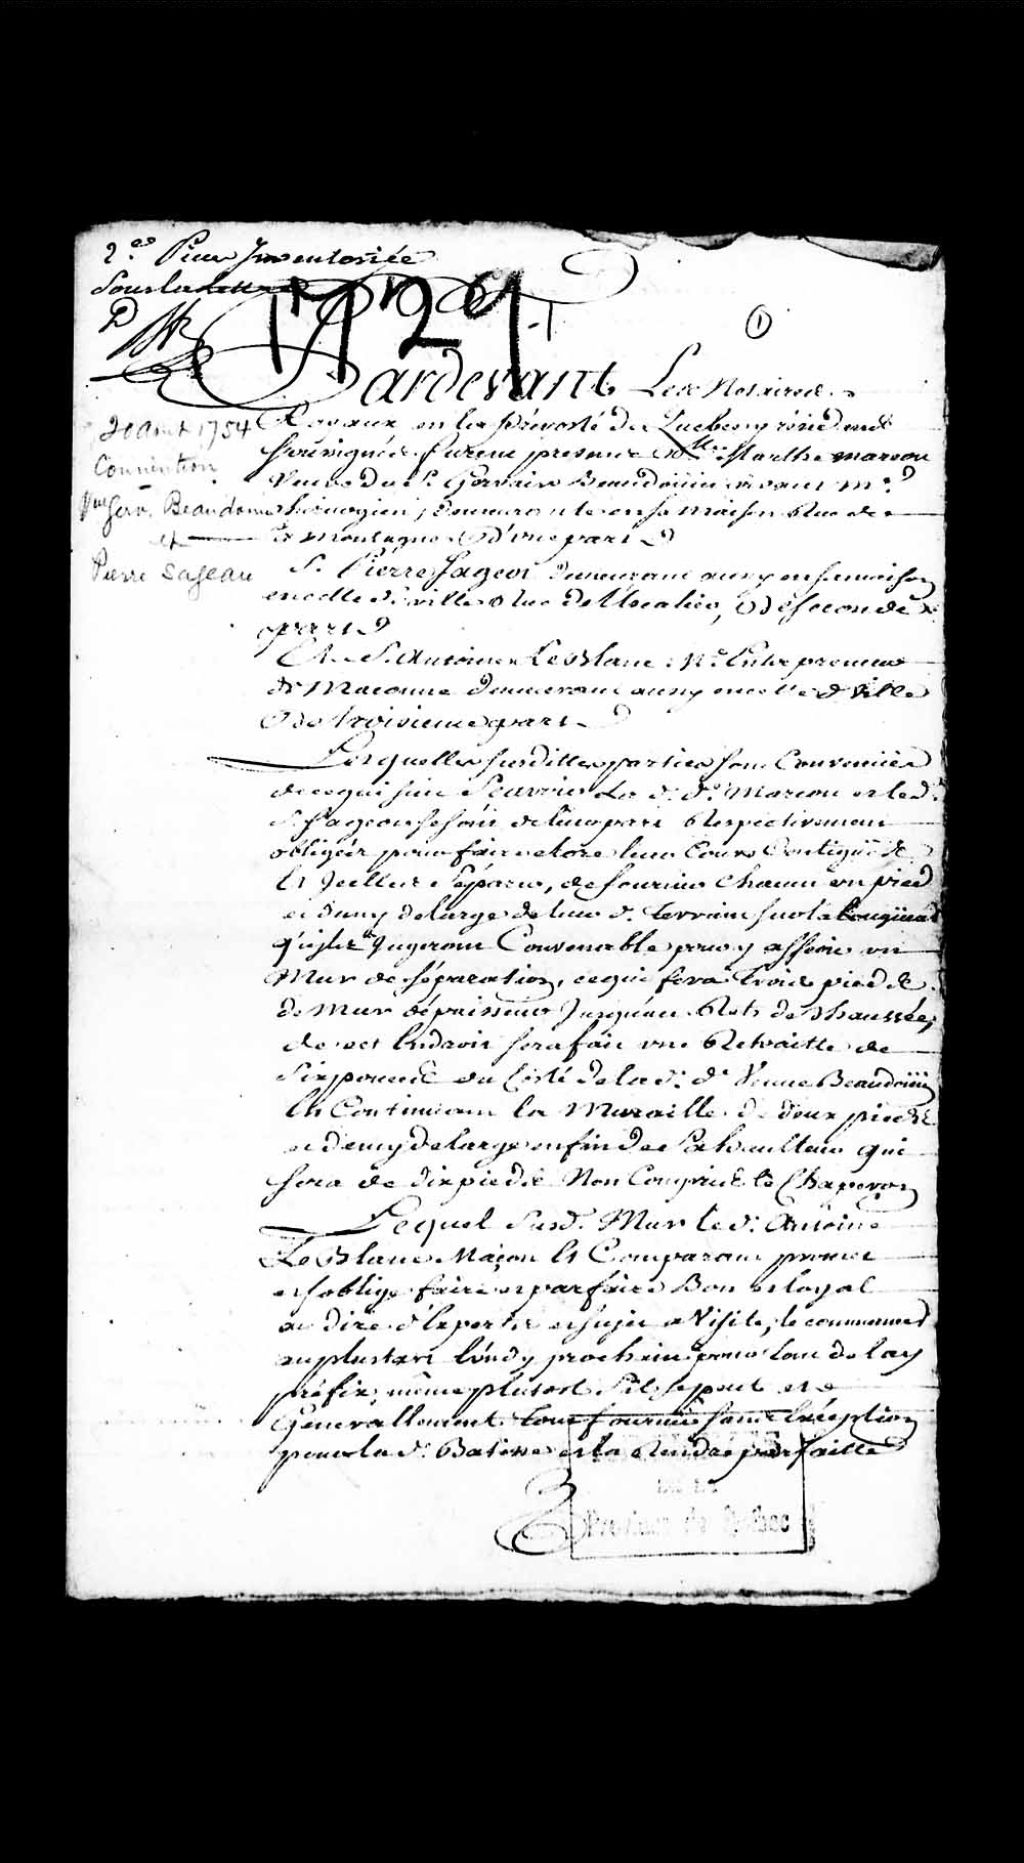 2.e Piece Inventoriée
Sous la lettre
D
1129
1
Pardevant Les Notaires
Royaux en la Prévosté de Quebecq résident
Soussignés furent presents D.e Marthe marcou
Veuve du S.r Gervais Beaudoüin vivant m.e
chirurgien, demeurante en sa maison Rue de
la montagne d'une part
S.r Pierre Sageot demeurant aussy en sa maison
en cette d. ville Rue de Seconde
part
Et S.r Antoine LeBlanc M.e Entrepreneur
de Maconne demeurant aussy en cette d. Ville
de troisieme part
Lesquelles susdittes parties sont Convenües
de ce qui suit Sçavoir La d. d.e Marcou et led.
S.r Sageot se sont de leur part Respectivement
obligées pour faire clore leur Cours Contigüe
et Icelles Separer, de fournir chacun un pied
et demy de large de leur d. terrain sur la longueur
qu'ils Jugeront Convenable pour y assoir un
Mur de séparation, ce qui fera trois pieds
de mur d'épaisseur Jusqu'au Rets de chaussée,
de cet Endroit sera fait une Retraitte de
Six pouces du Costé de la d. d.e Veuve Beaudoüin
En Continuant la Muraille de deux pieds
et demy de large en fin de Sa haulteur qui
sera de dix pieds Non Compris le Chaperon
Lequel Susd. Mur le d. Antoine
LeBlanc Maçon Et Comparant promet
et s'oblige faire et parfaire Bon et loyal
au dire d'Experts et sujet a Visite, le commencer
au plustart lundy prochain pour tout delay
préfix, même plutost S'il se peut et
Generallement tout fournir sans Exception
pour la d. Batisse et la Rendre parfaitte
20 Aout 1754
Convention
Vve Gerv. Beaudoin
et
Pierre Sageau
Province de Québec